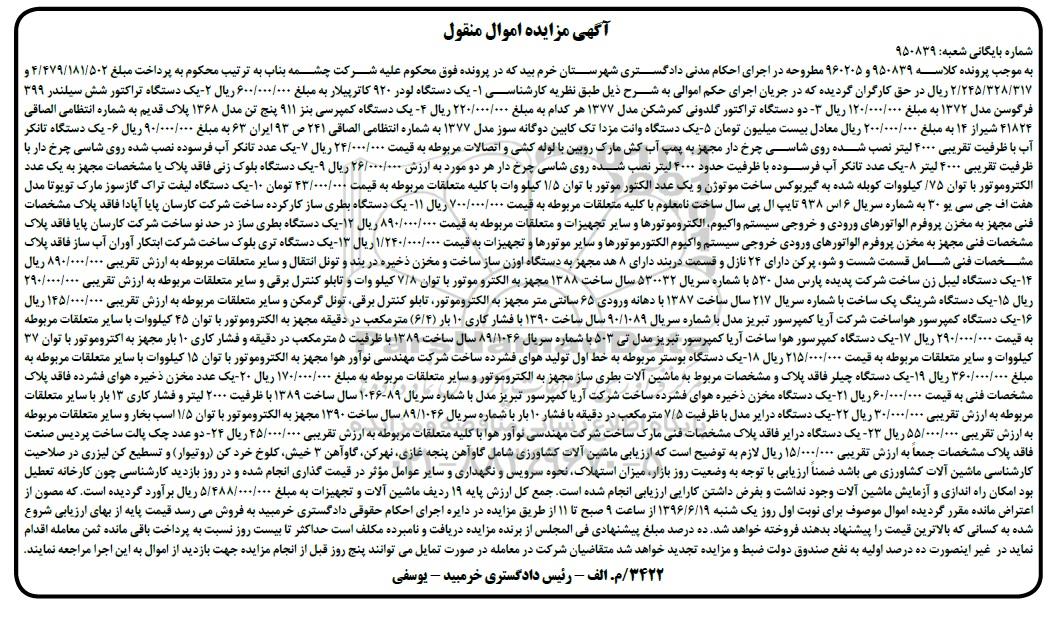 آگهی مزایده اموال منقول
شماره بایگانی شعبه: ۹۵۰۸۳۹
به موجب پرونده کلاسه ۹۵۰۸۳۹ و ۹۶۰۲۰۵ مطروحه در اجرای احکام مدنی دادگستری شهرستان خرم بید که در پرونده فوق محکوم علیه شرکت چشمه بناب به ترتیب محکوم به پرداخت مبلغ ۴/۴۷۹/۱۸۱/۵۰۲ و
۲/۲۴۵/۳۲۸/۳۱۷ ریال در حق کارگران گردیده که در جریان اجرای حکم اموالی به شرح ذیل طبق نظریه کارشناسی ۱- یک دستگاه لودر ۹۲۰ کاترپیلار به مبلغ ۶۰۰/۰۰۰/۰۰۰ ریال ۲-یک دستگاه تراکتور شش سیلندر ۳۹۹
فرگوسن مدل ۱۳۷۲ به مبلغ ۱۲۰/۰۰۰/۰۰۰ ریال ۳- دو دستگاه تراکتور گلدونی کمرشکن مدل ۱۳۷۷ هر کدام به مبلغ ۲۲۰/۰۰۰/۰۰۰ ریال ۴- یک دستگاه کمپرسی بنز ۹۱۱ پنج تن مدل ۱۳۶۸ پلاک قدیم به شماره انتظامی الصاقی
۴۱۸۲۴ شیراز ۱۴ به مبلغ ۲۰۰/۰۰۰/۰۰۰ ریال معادل بیست میلیون تومان ۵-یک دستگاه وانت مزدا تک کابین دوگانه سوز مدل ۱۳۷۷ به شماره انتظامی الصاقی ۲۴۱ ص ۹۳ ایران ۶۳ به مبلغ ۹۰/۰۰۰/۰۰۰ ریال ۶- یک دستگاه تانکر
آب با ظرفیت تقریبی ۴۰۰۰ لیتر نصب شده روی شاسی چرخ دار مجهز به پمپ آب کش مارک روبین با لوله کشی و اتصالات مربوطه به قیمت ۲۴/۰۰۰/۰۰۰ ریال ۷-یک عدد تانکر آب فرسوده نصب شده روی شاسی چرخ دار با
ظرفیت تقریبی ۴۰۰۰ لیتر ۸-یک عدد تانکر آب فرسوده با ظرفیت حدود ۴۰۰۰ لیتر نصب شده روی شاسی چرخ دار هر دو مورد به ارزش ۲۶/۰۰۰/۰۰۰ ریال ۹-یک دستگاه بلوک زنی فاقد پلاک یا مشخصات مجهز به یک عدد
الکتروموتور با توان ۷۵/ کیلووات کوپله شده به گیربوکس ساخت موتوژن و یک عدد الکتور موتور با توان ۱/۵ کیلو وات با کلیه متعلقات مربوطه به قیمت ۴۳/۰۰۰/۰۰۰ تومان ۱۰-یک دستگاه لیفت تراک گازسوز مارک تویوتا مدل
هفت اف جی سی یو ۳۰ به شماره سریال ۶ اس ۹۳۸ تایپ ال پی سال ساخت نامعلوم با کلیه متعلقات مربوطه به قیمت ۷۰۰/۰۰۰/۰۰۰ ریال ۱۱- یک دستگاه بطری ساز کارکرده ساخت شرکت کارسان پایا آپادا فاقد پلاک مشخصات
فنی مجهز به مخزن پروفرم الواتورهای ورودی و خروجی سیستم واکیوم، الکتروموتورها و سایر تجهیزات و متعلقات مربوطه به قیمت ۸۹۰/۰۰۰/۰۰۰ ریال ۱۲-یک دستگاه بطری ساز در حد نو ساخت شرکت کارسان پایا فاقد پلاک
مشخصات فنی مجهز به مخزن پروفرم الواتورهای ورودی خروجی سیستم واکیوم الکتورموتورها و سایر موتورها و تجهیزات به قیمت ۱/۲۴۰/۰۰۰/۰۰۰ ریال ۱۳-یک دستگاه تری بلوک ساخت شرکت ابتکار آوران آب ساز فاقد پلاک
مشخصات فنی شامل قسمت شست و شو، پرکن دارای ۲۴ نازل و قسمت دربند دارای ۸ هد مجهز به دستگاه اوزن ساز ساخت و مخزن ذخیره در بند و تونل انتقال و سایر متعلقات مربوطه به ارزش تقریبی ۸۹۰/۰۰۰/۰۰۰ ریال
۱۴-یک دستگاه لیبل زن ساخت شرکت پدیده پارس مدل ۵۳۰ با شماره سریال ۵۳۰۰۳۲ سال ساخت ۱۳۸۸ مجهز به الکترو موتور با توان ۷/۸ کیلو وات و تابلو کنترل برقی و سایر متعلقات مربوطه به ارزش تقریبی ۲۹۰/۰۰۰/۰۰۰
ریال ۱۵-یک دستگاه شرینگ پک ساخت با شماره سریال ۲۱۷ سال ساخت ۱۳۸۷ با دهانه ورودی ۶۵ سانتی متر مجهز به الکتروموتور، تابلو کنترل برقی، تونل گرمکن و سایر متعلقات مربوطه به ارزش تقریبی ۱۴۵/۰۰۰/۰۰۰ ریال
۱۶-یک دستگاه کمپرسور هواساخت شرکت آریا کمپرسور تبریز مدل با شماره سریال ۹۰/۱۰۸۹ سال ساخت ۱۳۹۰ با فشار کاری ۱۰ بار (۶/۴) مترمکعب در دقیقه مجهز به الکتروموتور با توان ۴۵ کیلووات با سایر متعلقات مربوطه
به قیمت ۲۹۰/۰۰۰/۰۰۰ ریال ۱۷-یک دستگاه کمپرسور هوا ساخت آریا کمپرسور تبریز مدل تی ۵۰۳ با شماره سریال ۸۹/۱۰۴۶ سال ساخت ۱۳۸۹ با ظرفیت ۵ مترمکعب در دقیقه و فشار کاری ۱۰ بار مجهز به اکتروموتور با توان ۳۷
کیلووات و سایر متعلقات مربوطه به قیمت ۲۱۵/۰۰۰/۰۰۰ ریال ۱۸-یک دستگاه بوستر مربوط به خط اول تولید هوای فشرده ساخت شرکت مهندسی نوآور هوا مجهز به الکتروموتور با توان ۱۵ کیلووات با سایر متعلقات مربوطه به
مبلغ ۳۶۰/۰۰۰/۰۰۰ ریال ۱۹-یک دستگاه چیلر فاقد پلاک و مشخصات مربوط به ماشین آلات بطری ساز مجهز به الکتروموتور و سایر متعلقات مربوطه به مبلغ ۱۷۰/۰۰۰/۰۰۰ ریال ۲۰-یک عدد مخزن ذخیره هوای فشرده فاقد پلاک
مشخصات فنی به قیمت ۶۰/۰۰۰/۰۰۰ ریال ۲۱-یک دستگاه مخزن ذخیره هوای فشرده ساخت شرکت آریا کمپرسور تبریز مدل با شماره سریال ۸۹-۱۰۴۶ سال ساخت ۱۳۸۹ با ظرفیت ۲۰۰۰ لیتر و فشار کاری ۱۳ بار با سایر متعلقات
مربوطه به ارزش تقریبی ۳۰/۰۰۰/۰۰۰ ریال ۲۲-یک دستگاه درایر مدل با ظرفیت ۷/۵ مترمکعب در دقیقه با فشار ۱۰ بار با شماره سریال ۸۹/۱۰۴۶ سال ساخت ۱۳۹۰ مجهز به الکتروموتور با توان ۱/۵ اسب بخار و سایر متعلقات مربوطه
به ارزش تقریبی ۵۵/۰۰۰/۰۰۰ ریال ۲۳- یک دستگاه درایر فاقد پلاک مشخصات فنی مارک ساخت شرکت مهندسی نوآور هوا با کلیه متعلقات مربوطه به ارزش تقریبی ۴۵/۰۰۰/۰۰۰ ریال ۲۴- دو عدد چک پالت ساخت پردیس صنعت
فاقد پلاک مشخصات جمعاً به ارزش تقریبی ۱۵/۰۰۰/۰۰۰ ریال لازم به توضیح است که ارزیابی ماشین آلات کشاورزی شامل گاوآهن پنجه غازی، نهرکن، گاوآهن ۳ خیش، کلوخ خرد کن (روتیوار) و تسطیح کن لیزری در صلاحیت
کارشناسی ماشین آلات کشاورزی می باشد ضمناً ارزیابی با توجه به وضعیت روز بازار، میزان استهلاک، نحوه سرویس و نگهداری و سایر عوامل مؤثر در قیمت گذاری انجام شده و در روز بازدید کارشناسی چون کارخانه تعطیل
بود امکان راه اندازی و آزمایش ماشین آلات وجود نداشت و بفرض داشتن کارایی ارزیابی انجام شده است. جمع کل ارزش پایه ۱۹ ردیف ماشین آلات و تجهیزات به مبلغ ۵/۴۸۸/۰۰۰/۰۰۰ ریال برآورد گردیده است. که مصون از
اعتراض مانده مقرر گردیده اموال موصوف برای نوبت اول روز یک شنبه ۱۳۹۶/۶/۱۹ از ساعت ۹ صبح تا ۱۱ از طریق مزایده در دایره اجرای احکام حقوقی دادگستری خرمبید به فروش می رسد قیمت پایه از بهای ارزیابی شروع
شده به کسانی که بالاترین قیمت را پیشنهاد بدهند فروخته خواهد شد. ده درصد مبلغ پیشنهادی فی المجلس از برنده مزایده دریافت و نامبرده مکلف است حداکثر تا بیست روز نسبت به پرداخت باقی مانده ثمن معامله اقدام
نماید در غیر اینصورت ده درصد اولیه به نفع صندوق دولت ضبط و مزایده تجدید خواهد شد متقاضیان شرکت در معامله در صورت تمایل می توانند پنج روز قبل از انجام مزایده جهت بازدید از اموال به این اجرا مراجعه نمایند.
۳۴۲۲/م. الف - رئیس دادگستری خرمبید - یوسفی